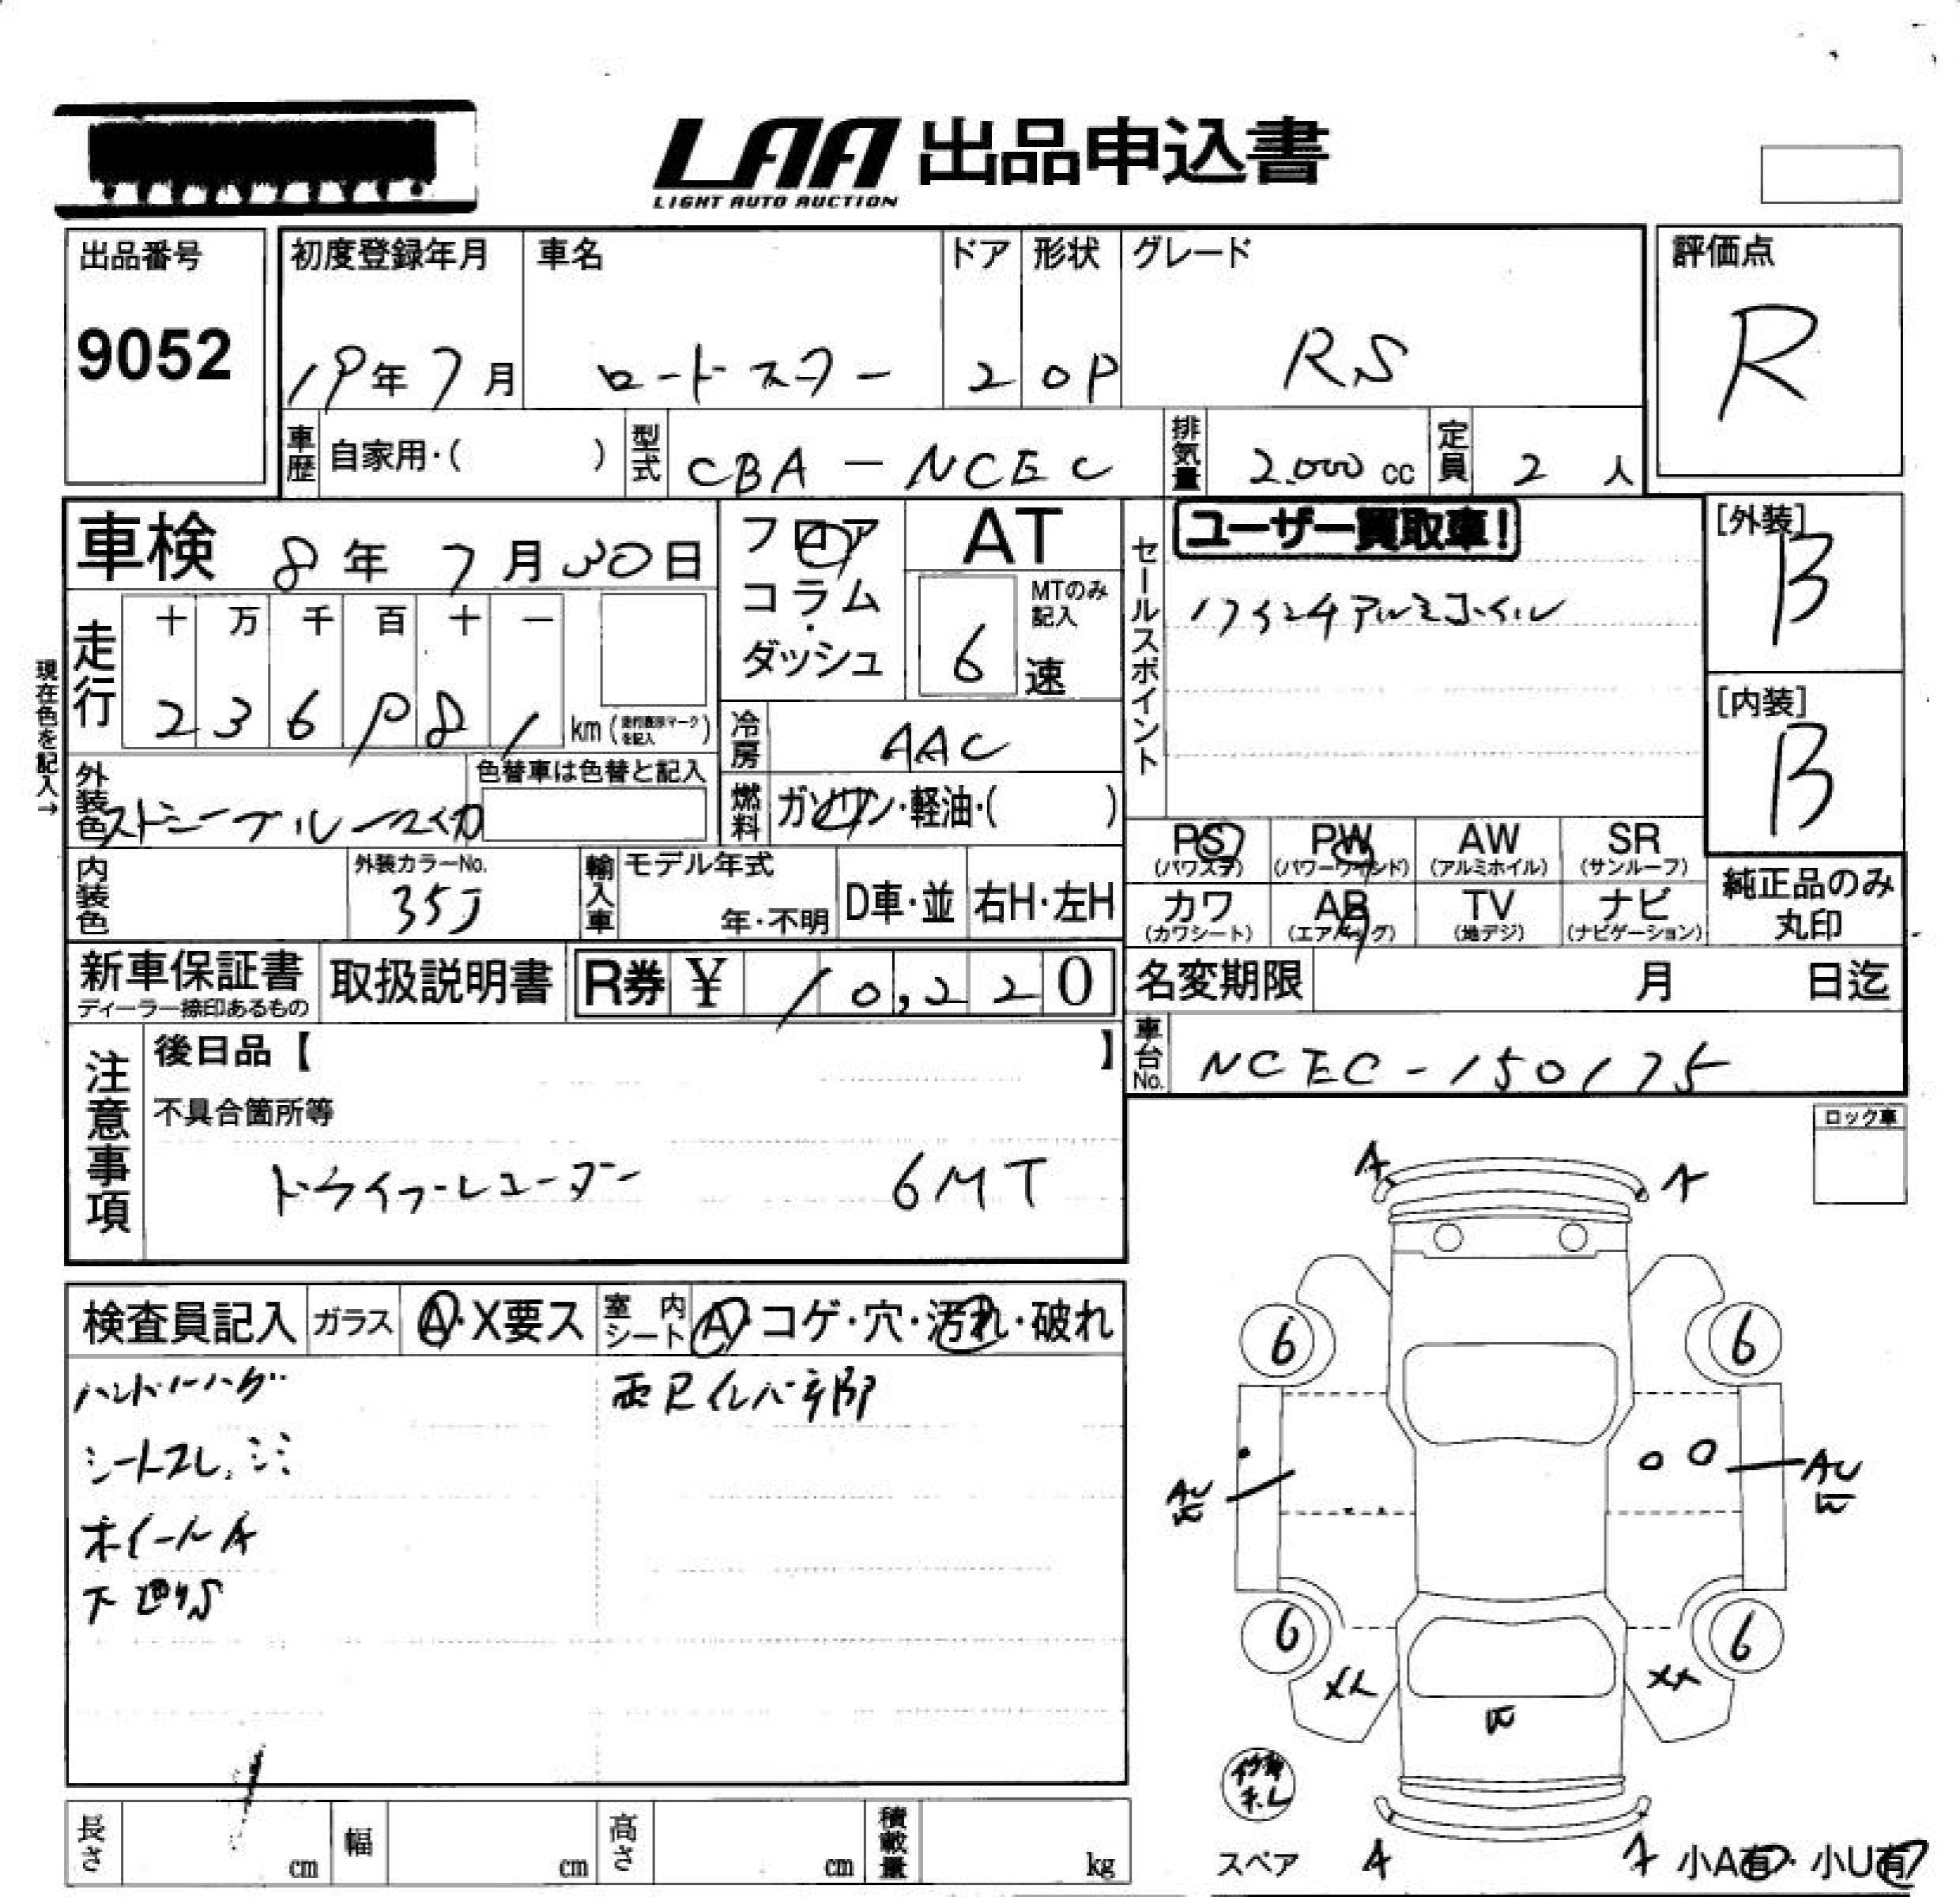 LAA 出品申込書
LIGHT AUTO AUCTION
出品番号
9052
初度登録年月
19年7月
車名
ロードスター
ドア
2
形状
OP
グレード
RS
評価点
R
車歴 自家用・( )
型式 CBA-NCEC
排気量 2.000cc
定員 2人
車検 8年7月30日
フロア
コラム
・
ダッシュ
AT
MTのみ記入
6速
セールスポイント
ユーザー買取車!
17インチアルミホイル
[外装]
B
[内装]
B
現在色を記入→
走行
十 万 千 百 十 一
2 3 6 9 8 1 km (走行表示マークを記入)
冷房 AAC
外装色
色替車は色替と記入
燃料 ガソリン・軽油・( )
PS (パワステ) PW (パワーウインド) AW (アルミホイル) SR (サンルーフ)
カワ (カワシート) AB (エアバッグ) TV (地デジ) ナビ (ナビゲーション)
純正品のみ丸印
内装色
外装カラーNo.
35J
輸入車
モデル年式
年・不明
D車・並
右H・左H
新車保証書
ディーラー捺印あるもの
取扱説明書
R券 ¥ 10,220
名変期限 月 日迄
車台No. NCEC-150175
注意事項
後日品【 】
不具合箇所等
ドライブレコーダー 6MT
ロック車
検査員記入
ガラス A・X要ス
室内シート A・コゲ・穴・汚れ・破れ
シートスレ、シミ
ホイールA
A A
6 6
AU
W
AU
W
6 6
XX
W
修キL
スペア
A A
小A有・小U有
長さ cm
幅 cm
高さ cm
積載量 kg